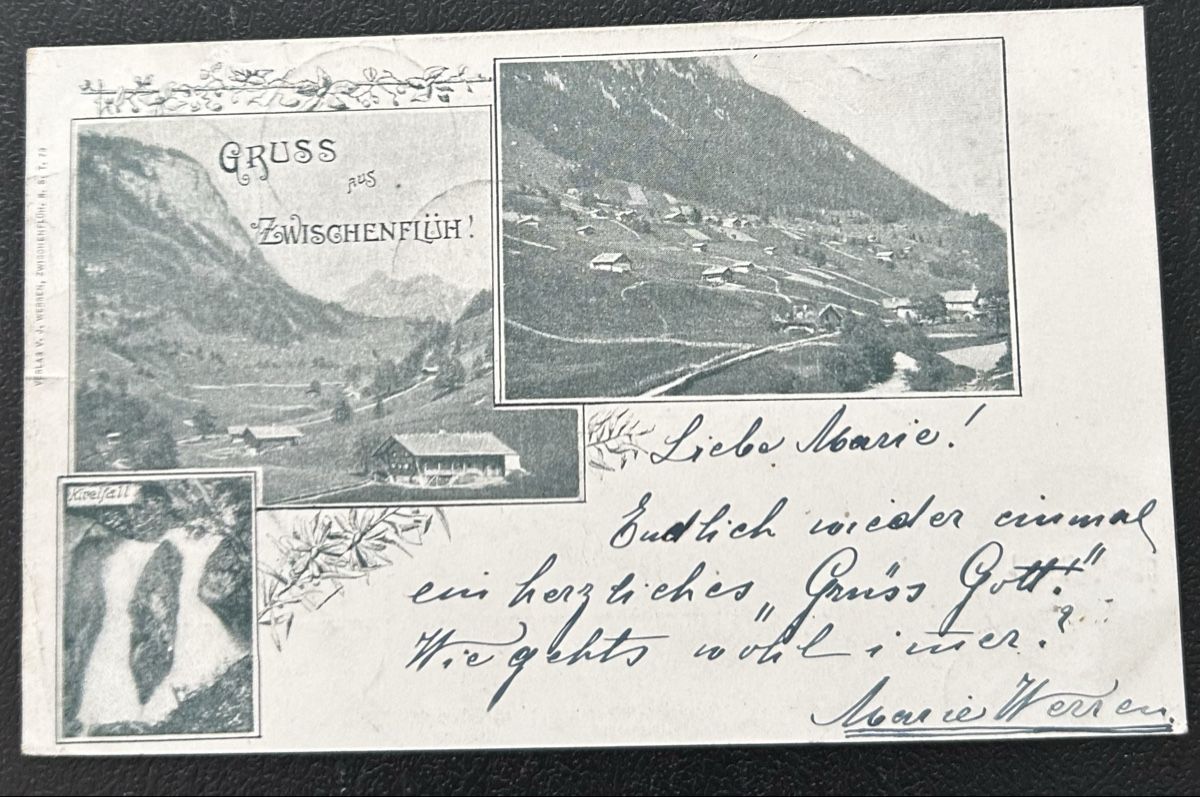 GRUSS
AUS
ZWISCHENFLÜH!
VERLAG V. J. WERREN, ZWISCHENFLÜH, N. S. T. 79
Kirelfall
Liebe Marie!
Endlich wieder einmal
ein herzliches „Grüss Gott!"
Wie gehts wohl immer?
Marie Werren.